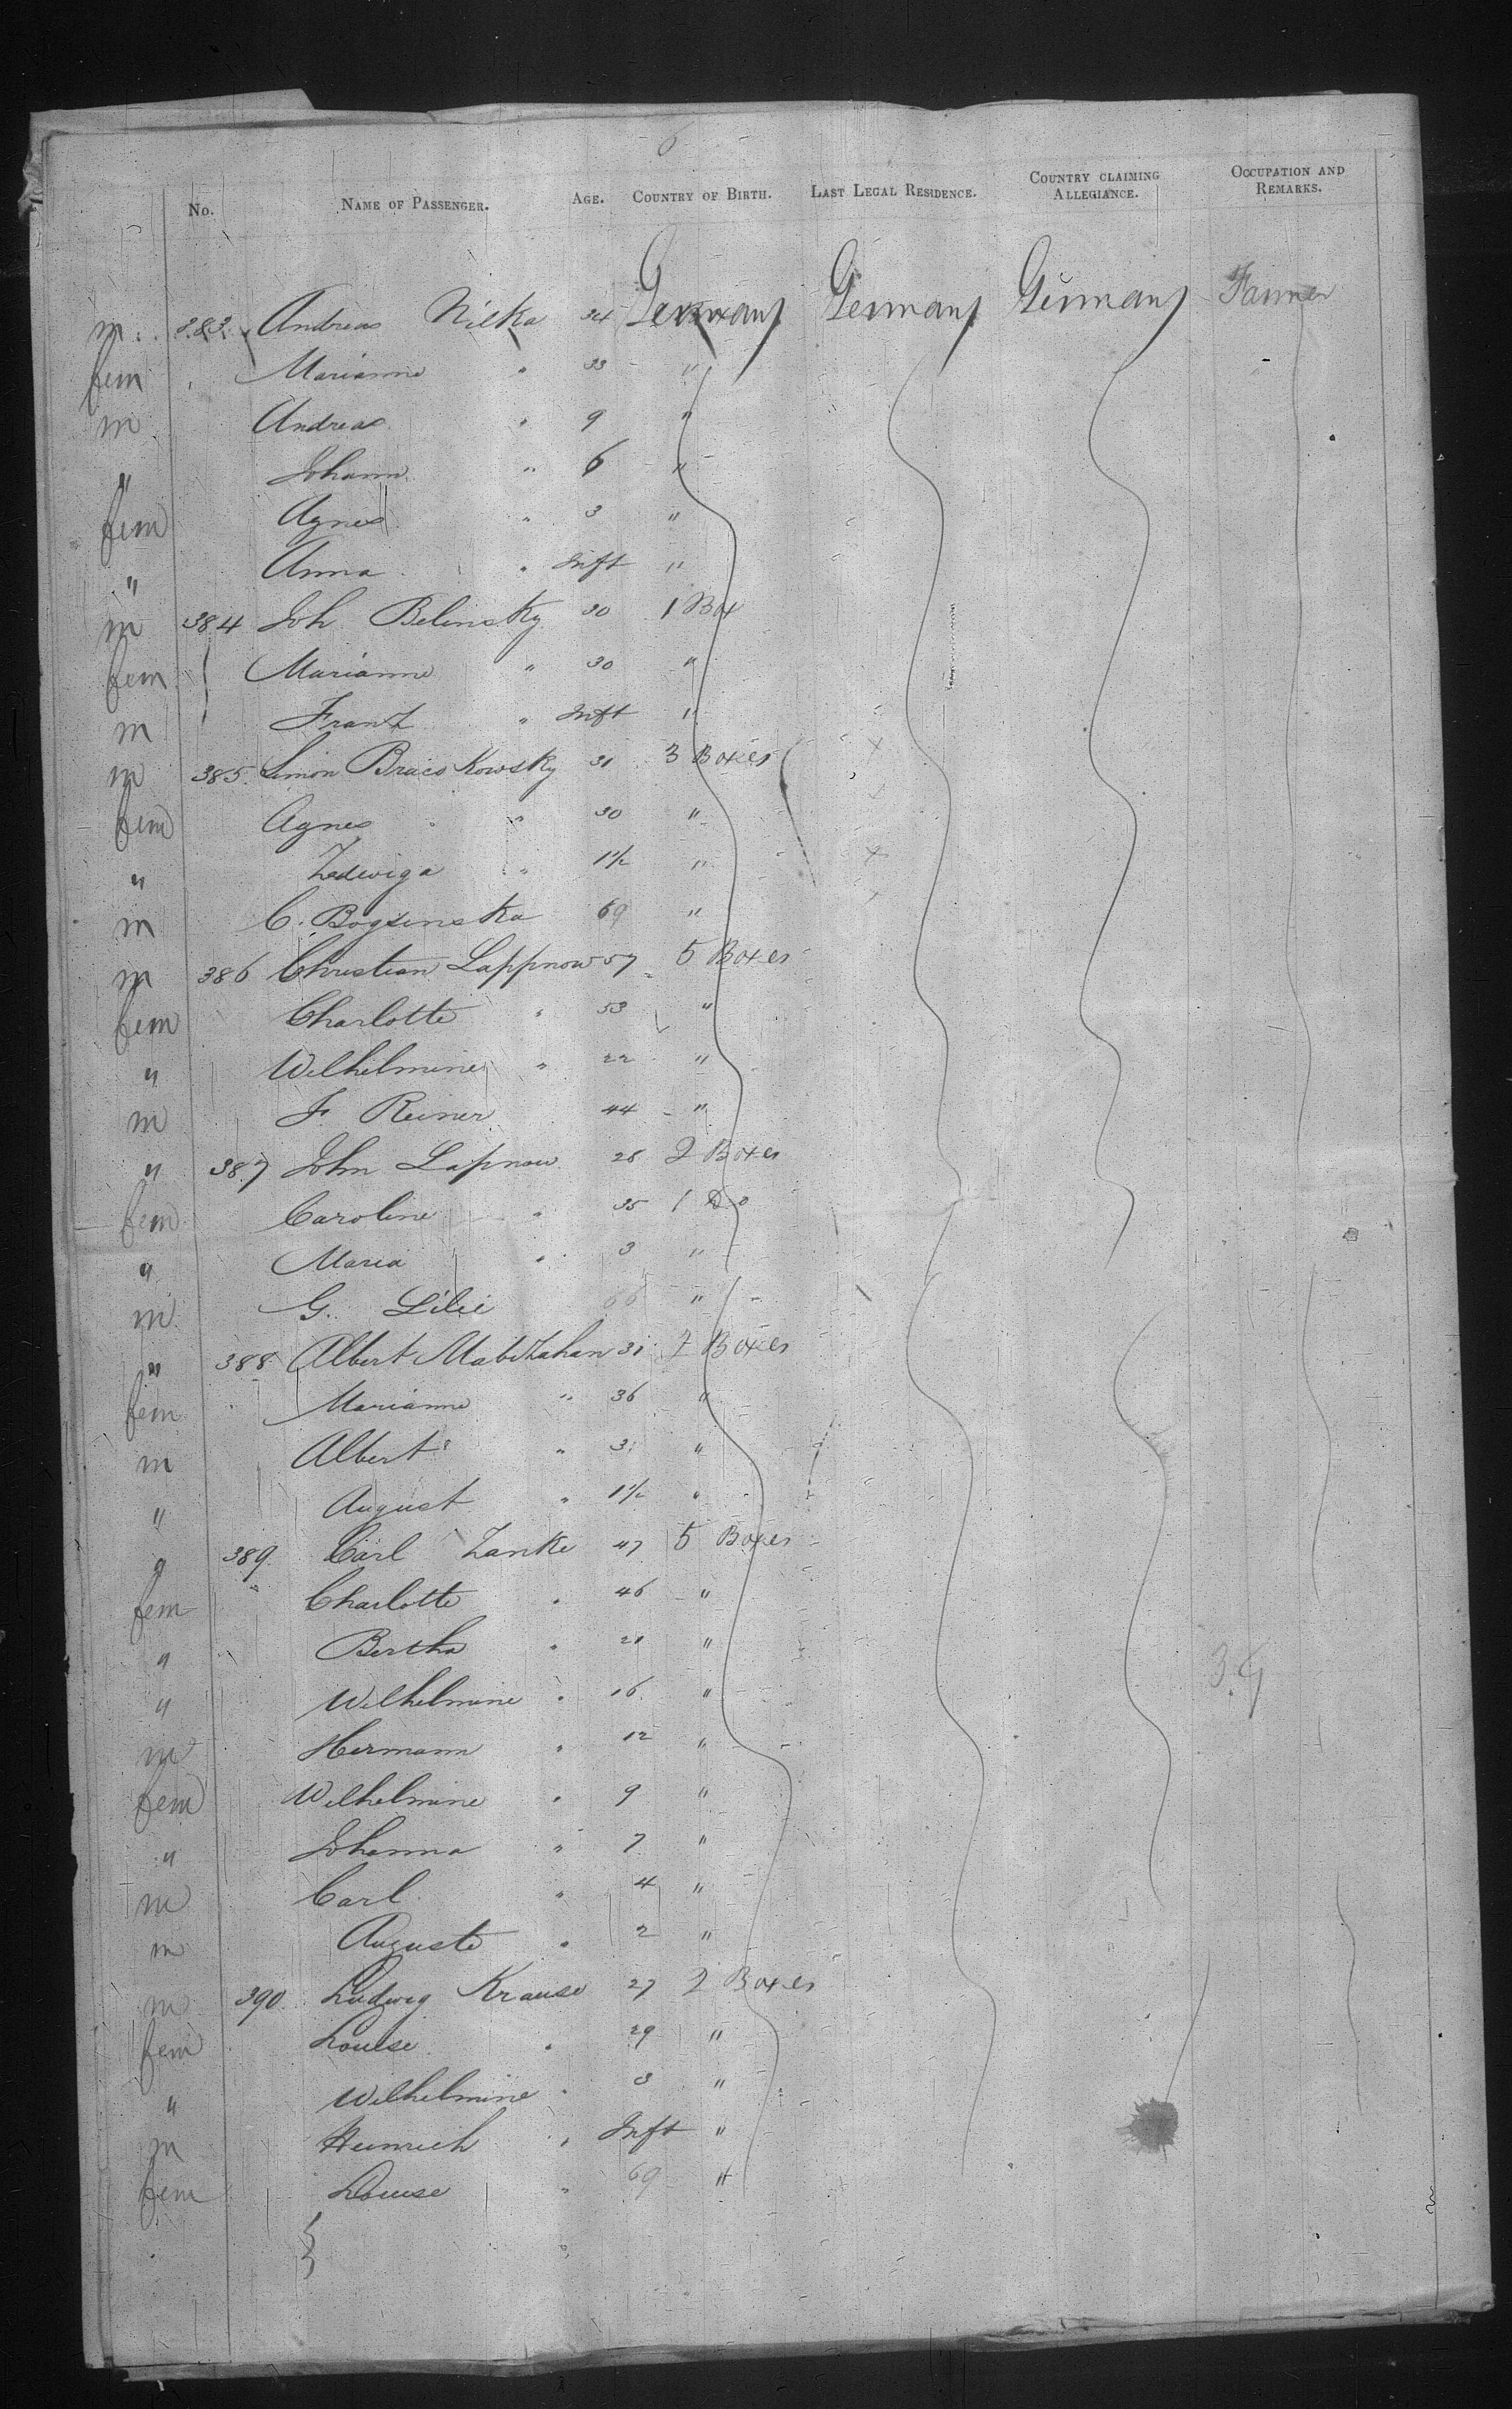 6
No. NAME OF PASSENGER. AGE. COUNTRY OF BIRTH. LAST LEGAL RESIDENCE. COUNTRY CLAIMING ALLEGIANCE. OCCUPATION AND REMARKS.
m 383 Andreas Nilka 34 Germany Germany Germany Farmer
fem Marianne " 33 "
m Andreas " 9 "
" Johann " 6 "
fem Agnes " 3 "
" Anna " Inft "
m 384 Joh Belinsky 30 1 Box
fem Marianne " 30 "
m Franz " Inft "
m 385 Simon Kowsky 31 3 Boxes
fem Agnes " 30 "
" Hedwiga " 1½ "
m C. 69 "
m 386 Christian Lappnow 57 5 Boxes
fem Charlotte " 53 "
" Wilhelmine " 22 "
m F Reiner 44 "
" 387 John Lapnow 28 2 Boxes
fem Caroline " 35 1 Do
" Maria " 3 "
m G. Lilie 66 "
" 388 Albert 31 2 Boxes
fem Marianne " 36 "
m Albert " 3 "
" August " 1½ "
" 389 Carl Zanke 47 5 Boxes
fem Charlotte " 46 "
" Bertha " 21 "
" Wilhelmine " 16 "
m Hermann " 12 "
fem Wilhelmine " 9 "
" Johanna " 7 "
m Carl " 4 "
m Auguste " 2 "
m 390 Ludwig Krause 27 2 Boxes
fem Louise " 29 "
" Wilhelmine " 3 "
m Heinrich " Inft "
fem Louise " 69 "